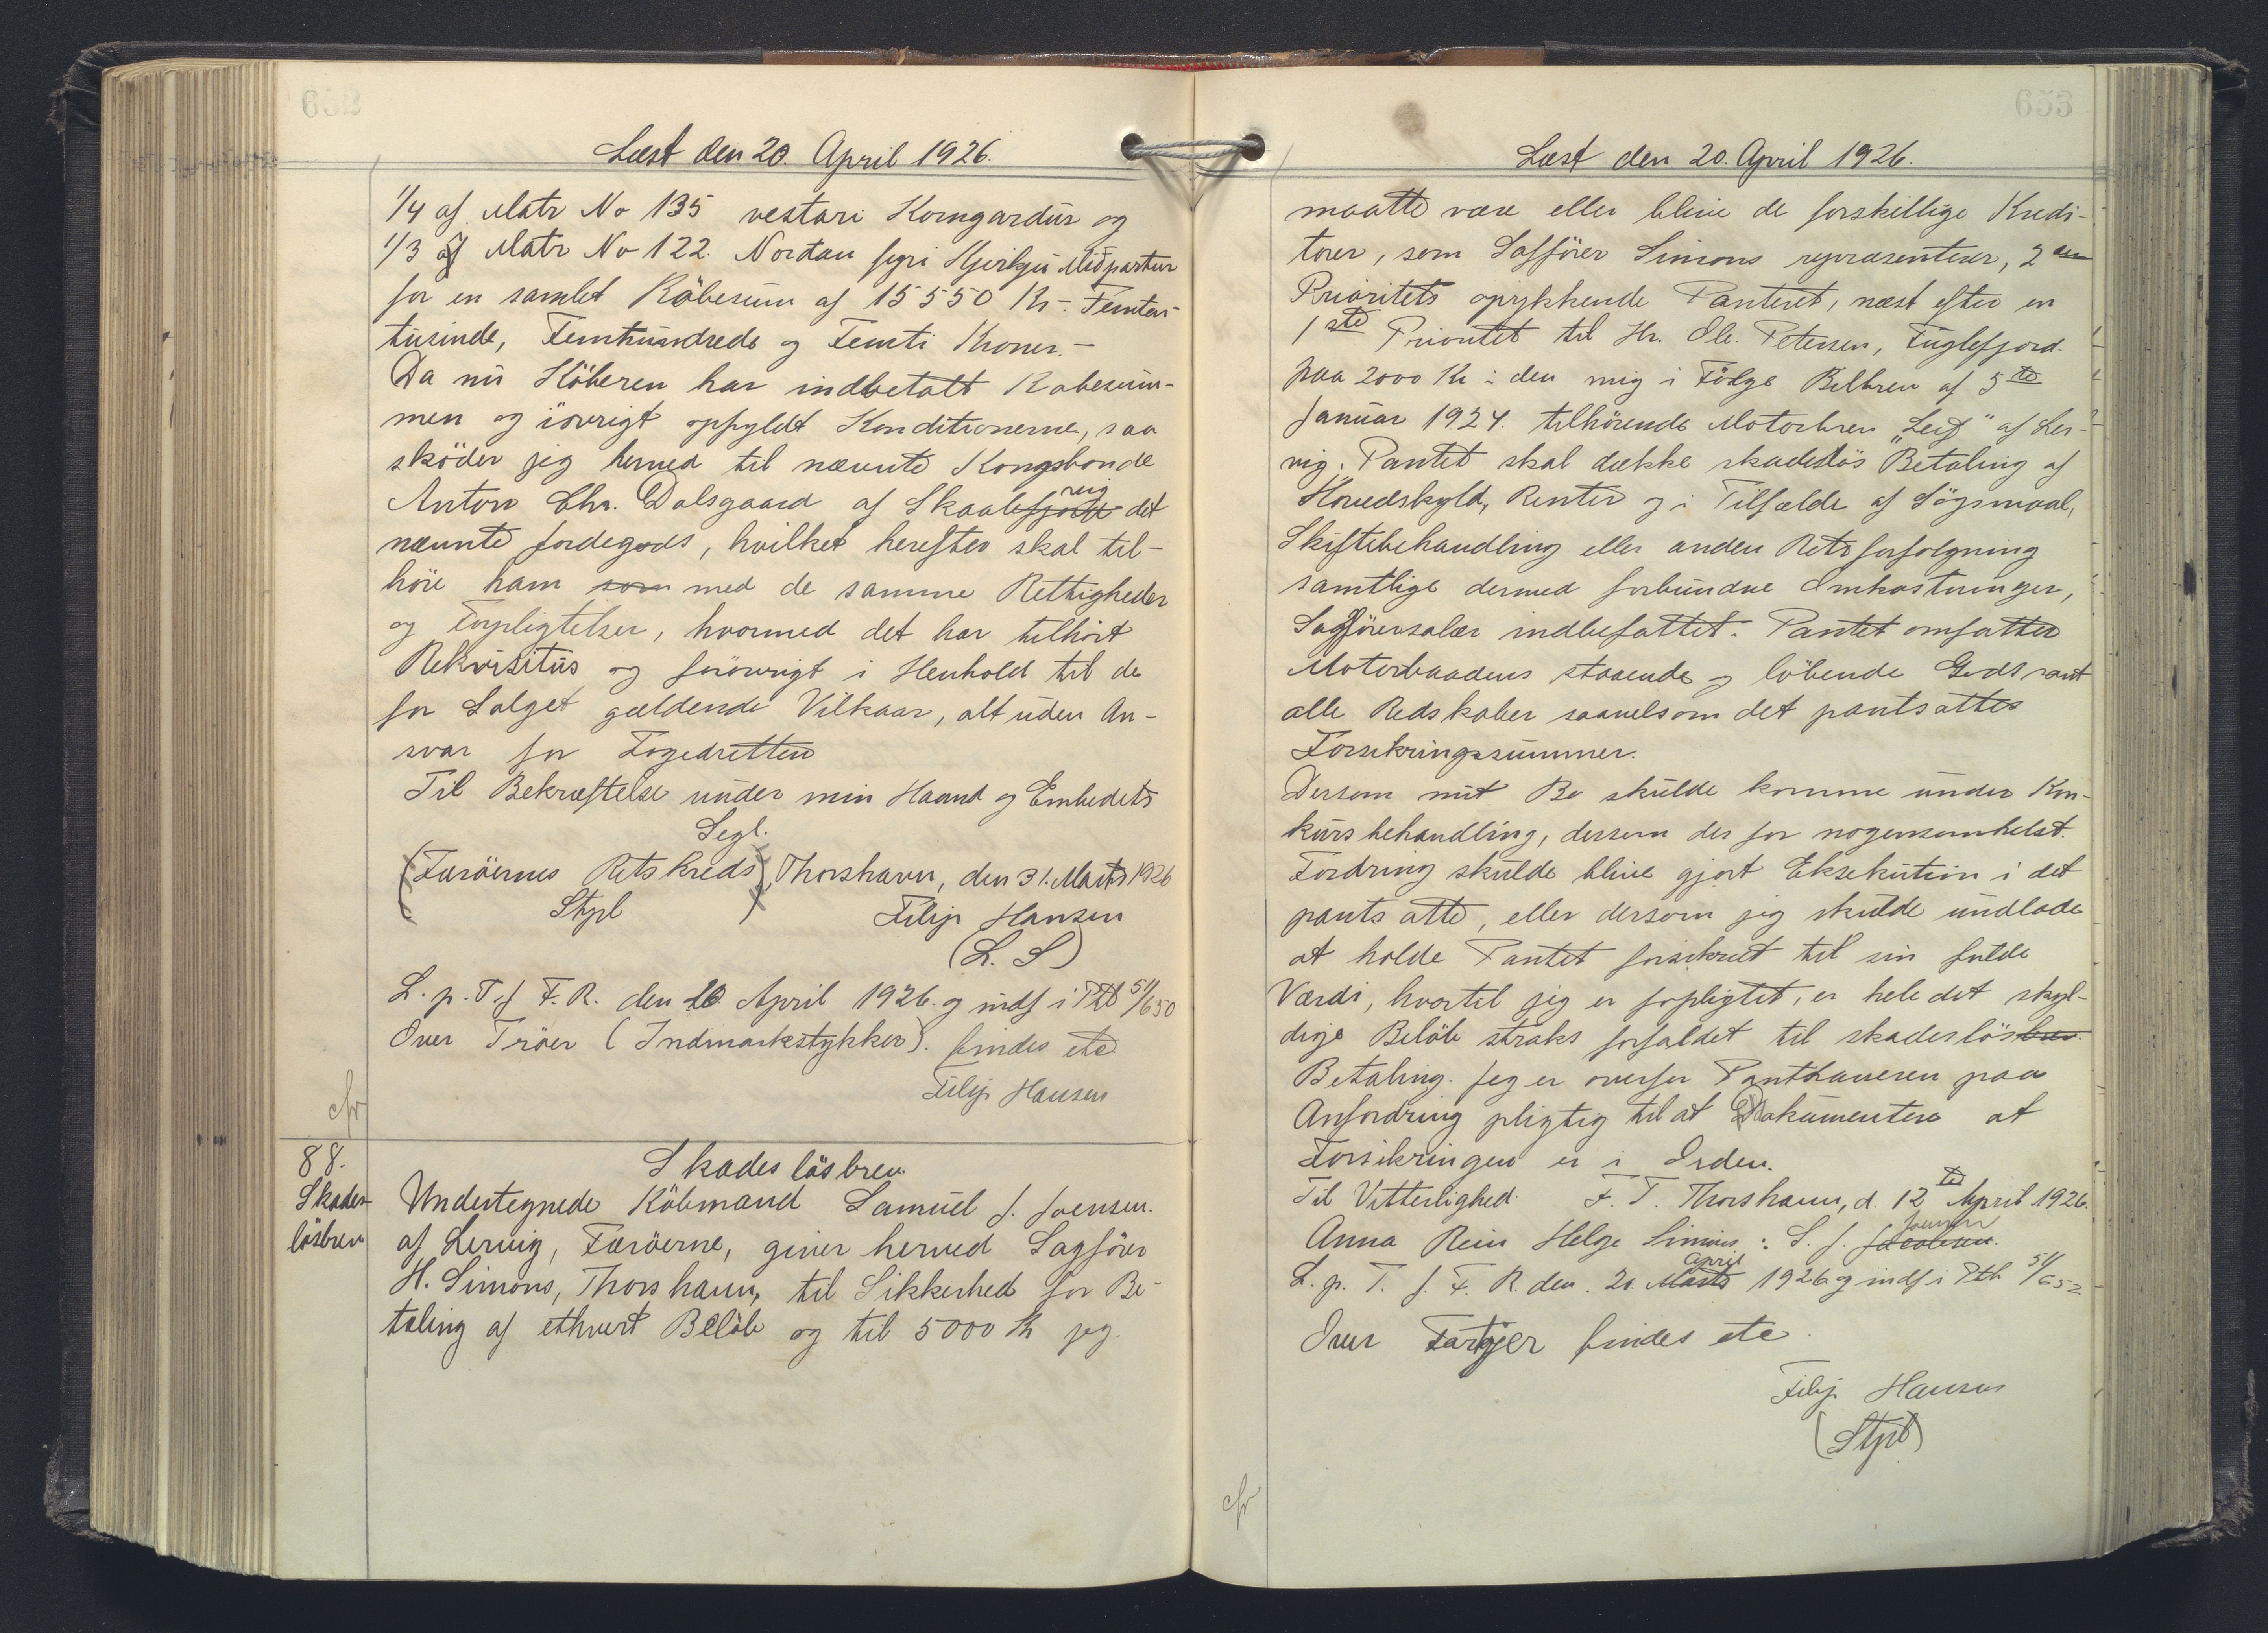 652
Læst den 20. April 1926.
1/4 af Matr No 135 vestari Korngardur og
1/3 af Matr No 122. Nordan fyri Kjirkju Miðpartur
for en samlet Köbesum af 15550 Kr.- Femten-
tusinde, Femhundrede og Femti Kroner.-
Da nu Köberen har indbetalt Kobesum-
men og iövrigt opfyldt Konditionerne, saa
sköder jeg herved til nævnte Kongsbonde
Anton Chr. Dalsgaard af Skaalefjord vig det
nævnte Jordegods, hvilket herefter skal til-
höre ham som med de samme Rettigheder
og Forpligtelser, hvormed det har tilhört
Rekvisitus og forövrigt i Henhold til de
for Salget gældende Vilkaar, alt uden An-
svar for Fogedretten
Til Bekræftelse under min Haand og Embedets
Segl.
(Færöernes Retskreds), Thorshavn, den 31. Marts 1926
Stpl
Filip Hansen
(L. S)
L. p. T. f F. R. den 20 April 1926. og indf i Ptb 51/650
Over Tröer (Indmarkstykker). findes etc
Filip Hansen
cfr
88.
Skades-
lösbrev
Skadeslösbrev.
Undertegnede Köbmand Samuel J. Joensen.
af Lervig, Færöerne, giver herved Sagförer
H. Simons, Thorshavn, til Sikkerhed for Be-
taling af ethvert Belöb og til 5000 Kr jeg.
653
Læst den 20. April 1926.
maatte være eller blive de forskillige Kredi-
torer, som Sagförer Simons repræsenterer, 2den
Prioritets oprykkende Panteret, næst efter en
1ste Prioritet til Hr. Ole. Petersen, Fuglefjord.
paa 2000 Kr i den mig i Fölge Bilbrev af 5te
Januar 1924. tilhörende Motorbren "Leif" af Ler-
vig. Pantet skal dække skadeslös Betaling af
Hovedskyld, Renter og i Tilfælde af Sögsmaal,
Skiftebehandling eller anden Retsforfolgning
samtlige dermed forbundne Omkostninger,
Sagförersalær indbefattet. Pantet omfatter
Motorbaadens staaende og löbende Gods samt
alle Redskaber saavelsom det pantsattes
Forsikringssummer.
Dersom mit Bo skulde komme under Kon-
kursbehandling, dersom der for nogensomhelst.
Fordring skulde blive gjort Eksekution i det
pantsatte, eller dersom jeg skulde undlade
at holde Pantet forsikret til sin fulde
Værdi, hvortil jeg er forpligtet, er hele det skyl-
dige Belöb straks forfaldet til skadeslösbrev.
Betaling. Jeg er overfor Panthaveren paa
Anfordring pligtig til at Dokumentere at
Forsikringen er i Orden.
Til Vitterlighed. F. T. Thorshavn, d. 12te April 1926.
Anna Rein Helge Simons : S. J. Jacobsen. Joensen
L. p. T. f. F. R. den. 20. Marts April 1926 og indf i Ptb 51/652
Over Fartöjer findes etc.
Filip Hansen
(Stpl)
cfr